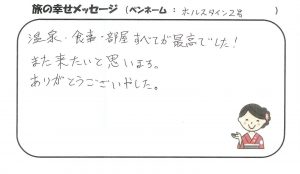 旅の幸せメッセージ（ペンネーム：ホルスタイン2号）
温泉・食事・部屋すべてが最高でした！
また来たいと思います。
ありがとうございやした。